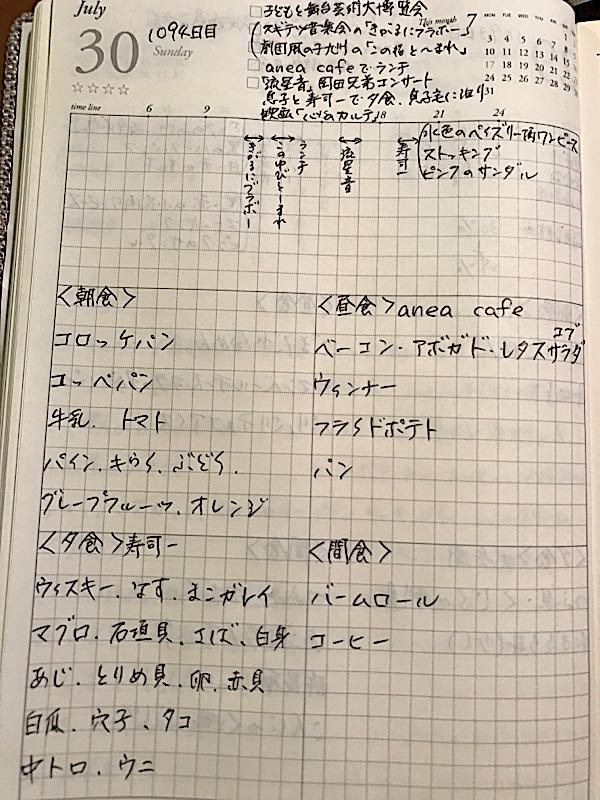 July
30
1094日目
Sunday
☆☆☆☆
This month 7
MON TUE WED THU FRI SAT SUN
1 2
3 4 5 6 7 8 9
10 11 12 13 14 15 16
17 18 19 20 21 22 23
24 25 26 27 28 29 30
31
□子どもと舞台芸術大博覧会
スギテツ音楽会の「きがるにブラボー」
劇団風の子九州の「このゆびと〜まれ」
□anea cafeでランチ
□「流星音」岡田兄弟コンサート
息子と寿司一で夕食、息子宅に泊り
映画「心のカルテ」
time line 6 9 18 21 24
きがるにブラボー
このゆびとーまれ
ランチ
流星音
寿司一
水色のペイズリー柄ワンピース
ストッキング
ピンクのサンダル
<朝食>
コロッケパン
コッペパン
牛乳、トマト
パイン、きうい、ぶどう、
グレープフルーツ、オレンジ
<昼食>anea cafe
ベーコン・アボガド・レタスコブサラダ
ウィンナー
フライドポテト
パン
<夕食>寿司一
ウィスキー、なす、まこガレイ
マグロ、石垣貝、さば、白身
あじ、とりめ貝、卵、赤貝
白瓜、穴子、タコ
中トロ、ウニ
<間食>
バームロール
コーヒー